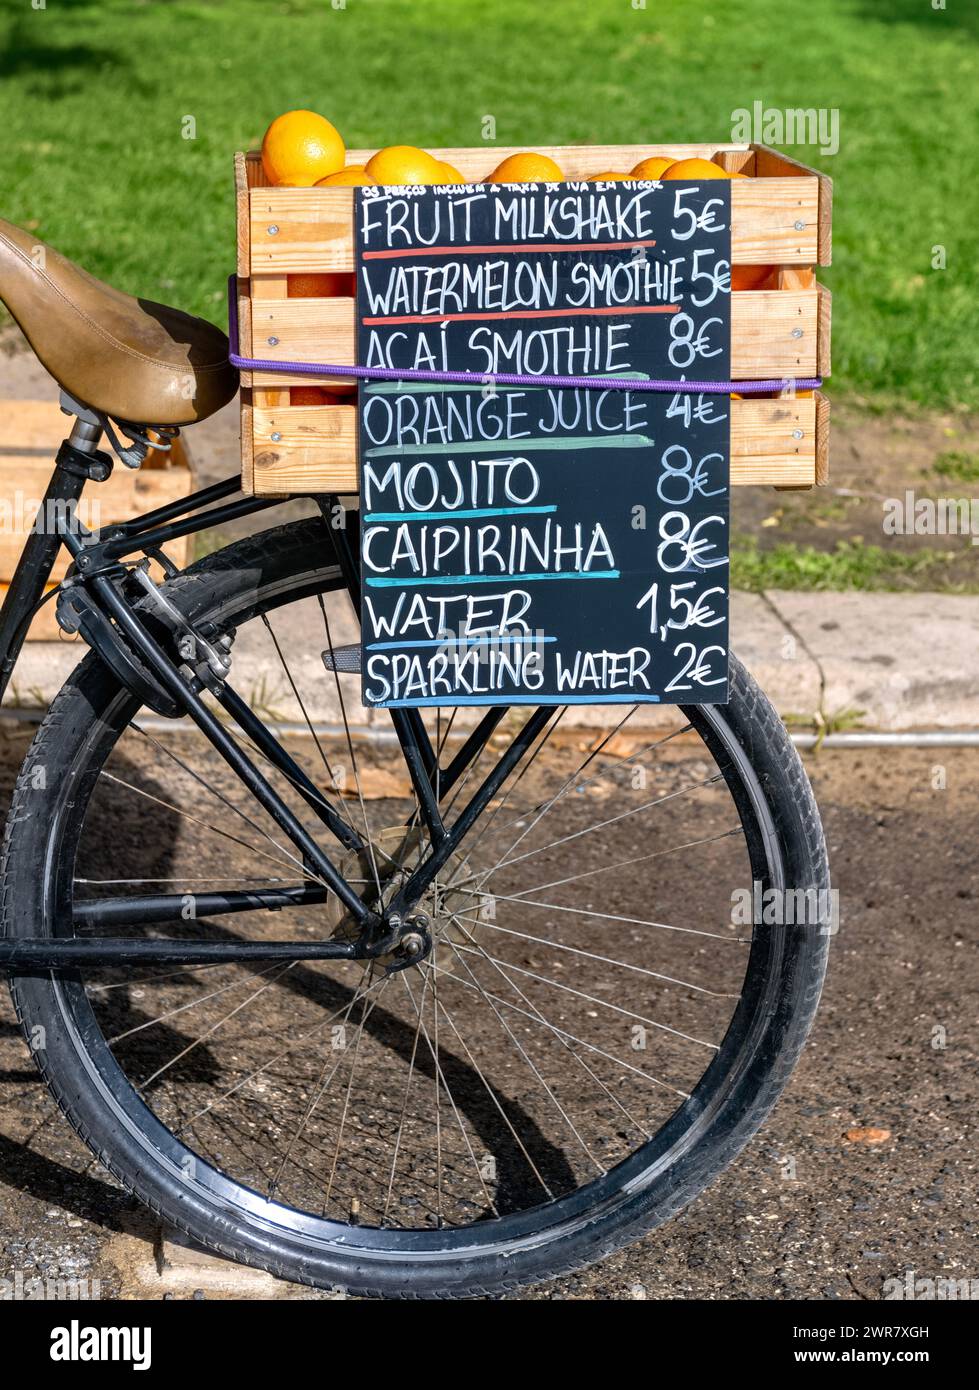 OS PREÇOS INCLUEM A TAXA DE IVA EM VIGOR
FRUIT MILKSHAKE 5€
WATERMELON SMOTHIE 5€
AÇAÍ SMOTHIE 8€
ORANGE JUICE 4€
MOJITO 8€
CAIPIRINHA 8€
WATER 1,5€
SPARKLING WATER 2€
alamy
Image ID: 2WR7XGH
www.alamy.com